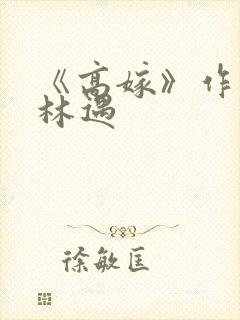 《高嫁》作
林遇
徐敏匡